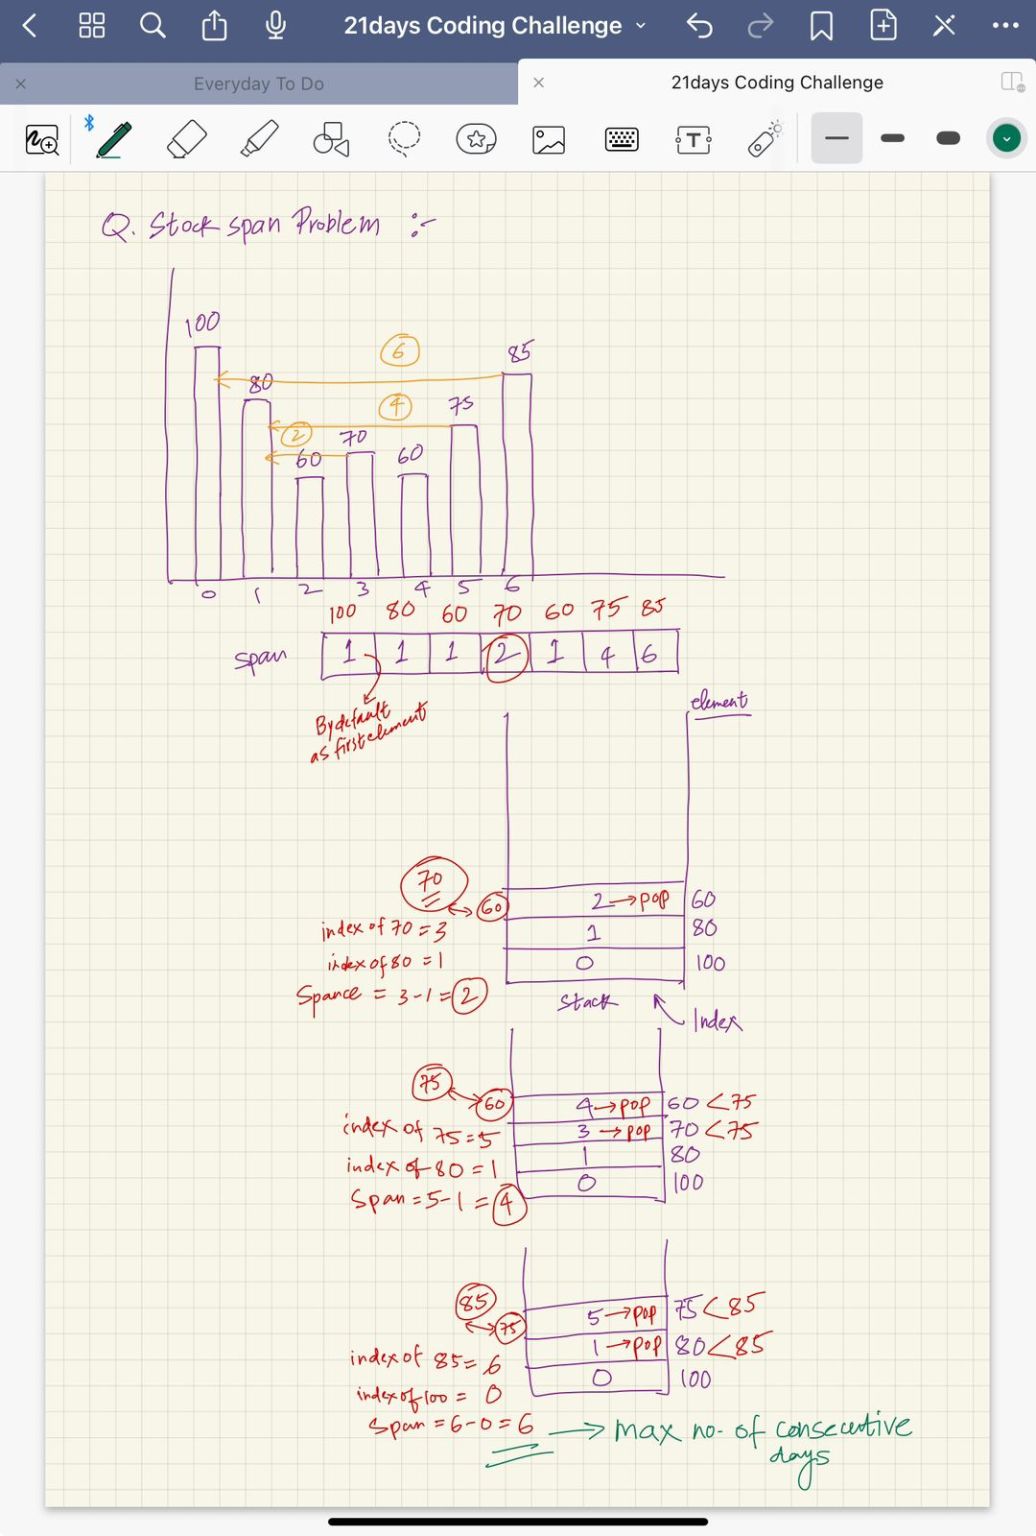 21days Coding Challenge
Everyday To Do
21days Coding Challenge
T
Q. Stock span Problem :-
100
6
85
80
4
75
2
70
60
60
0 1 2 3 4 5 6
100 80 60 70 60 75 85
span 1 1 1 2 1 4 6
By default
as first element
element
70
60 2→pop 60
index of 70 = 3 1 80
index of 80 = 1 0 100
Spance = 3-1 = 2
Stack
Index
75
60 4→pop 60 <75
index of 75=5 3→pop 70 <75
index of 80 = 1 1 80
Span = 5-1 = 4 0 100
85
75 5→pop 75<85
1→pop 80<85
index of 85= 6 0 100
index of 100 = 0
Span = 6-0 = 6 → max no. of consecutive
days